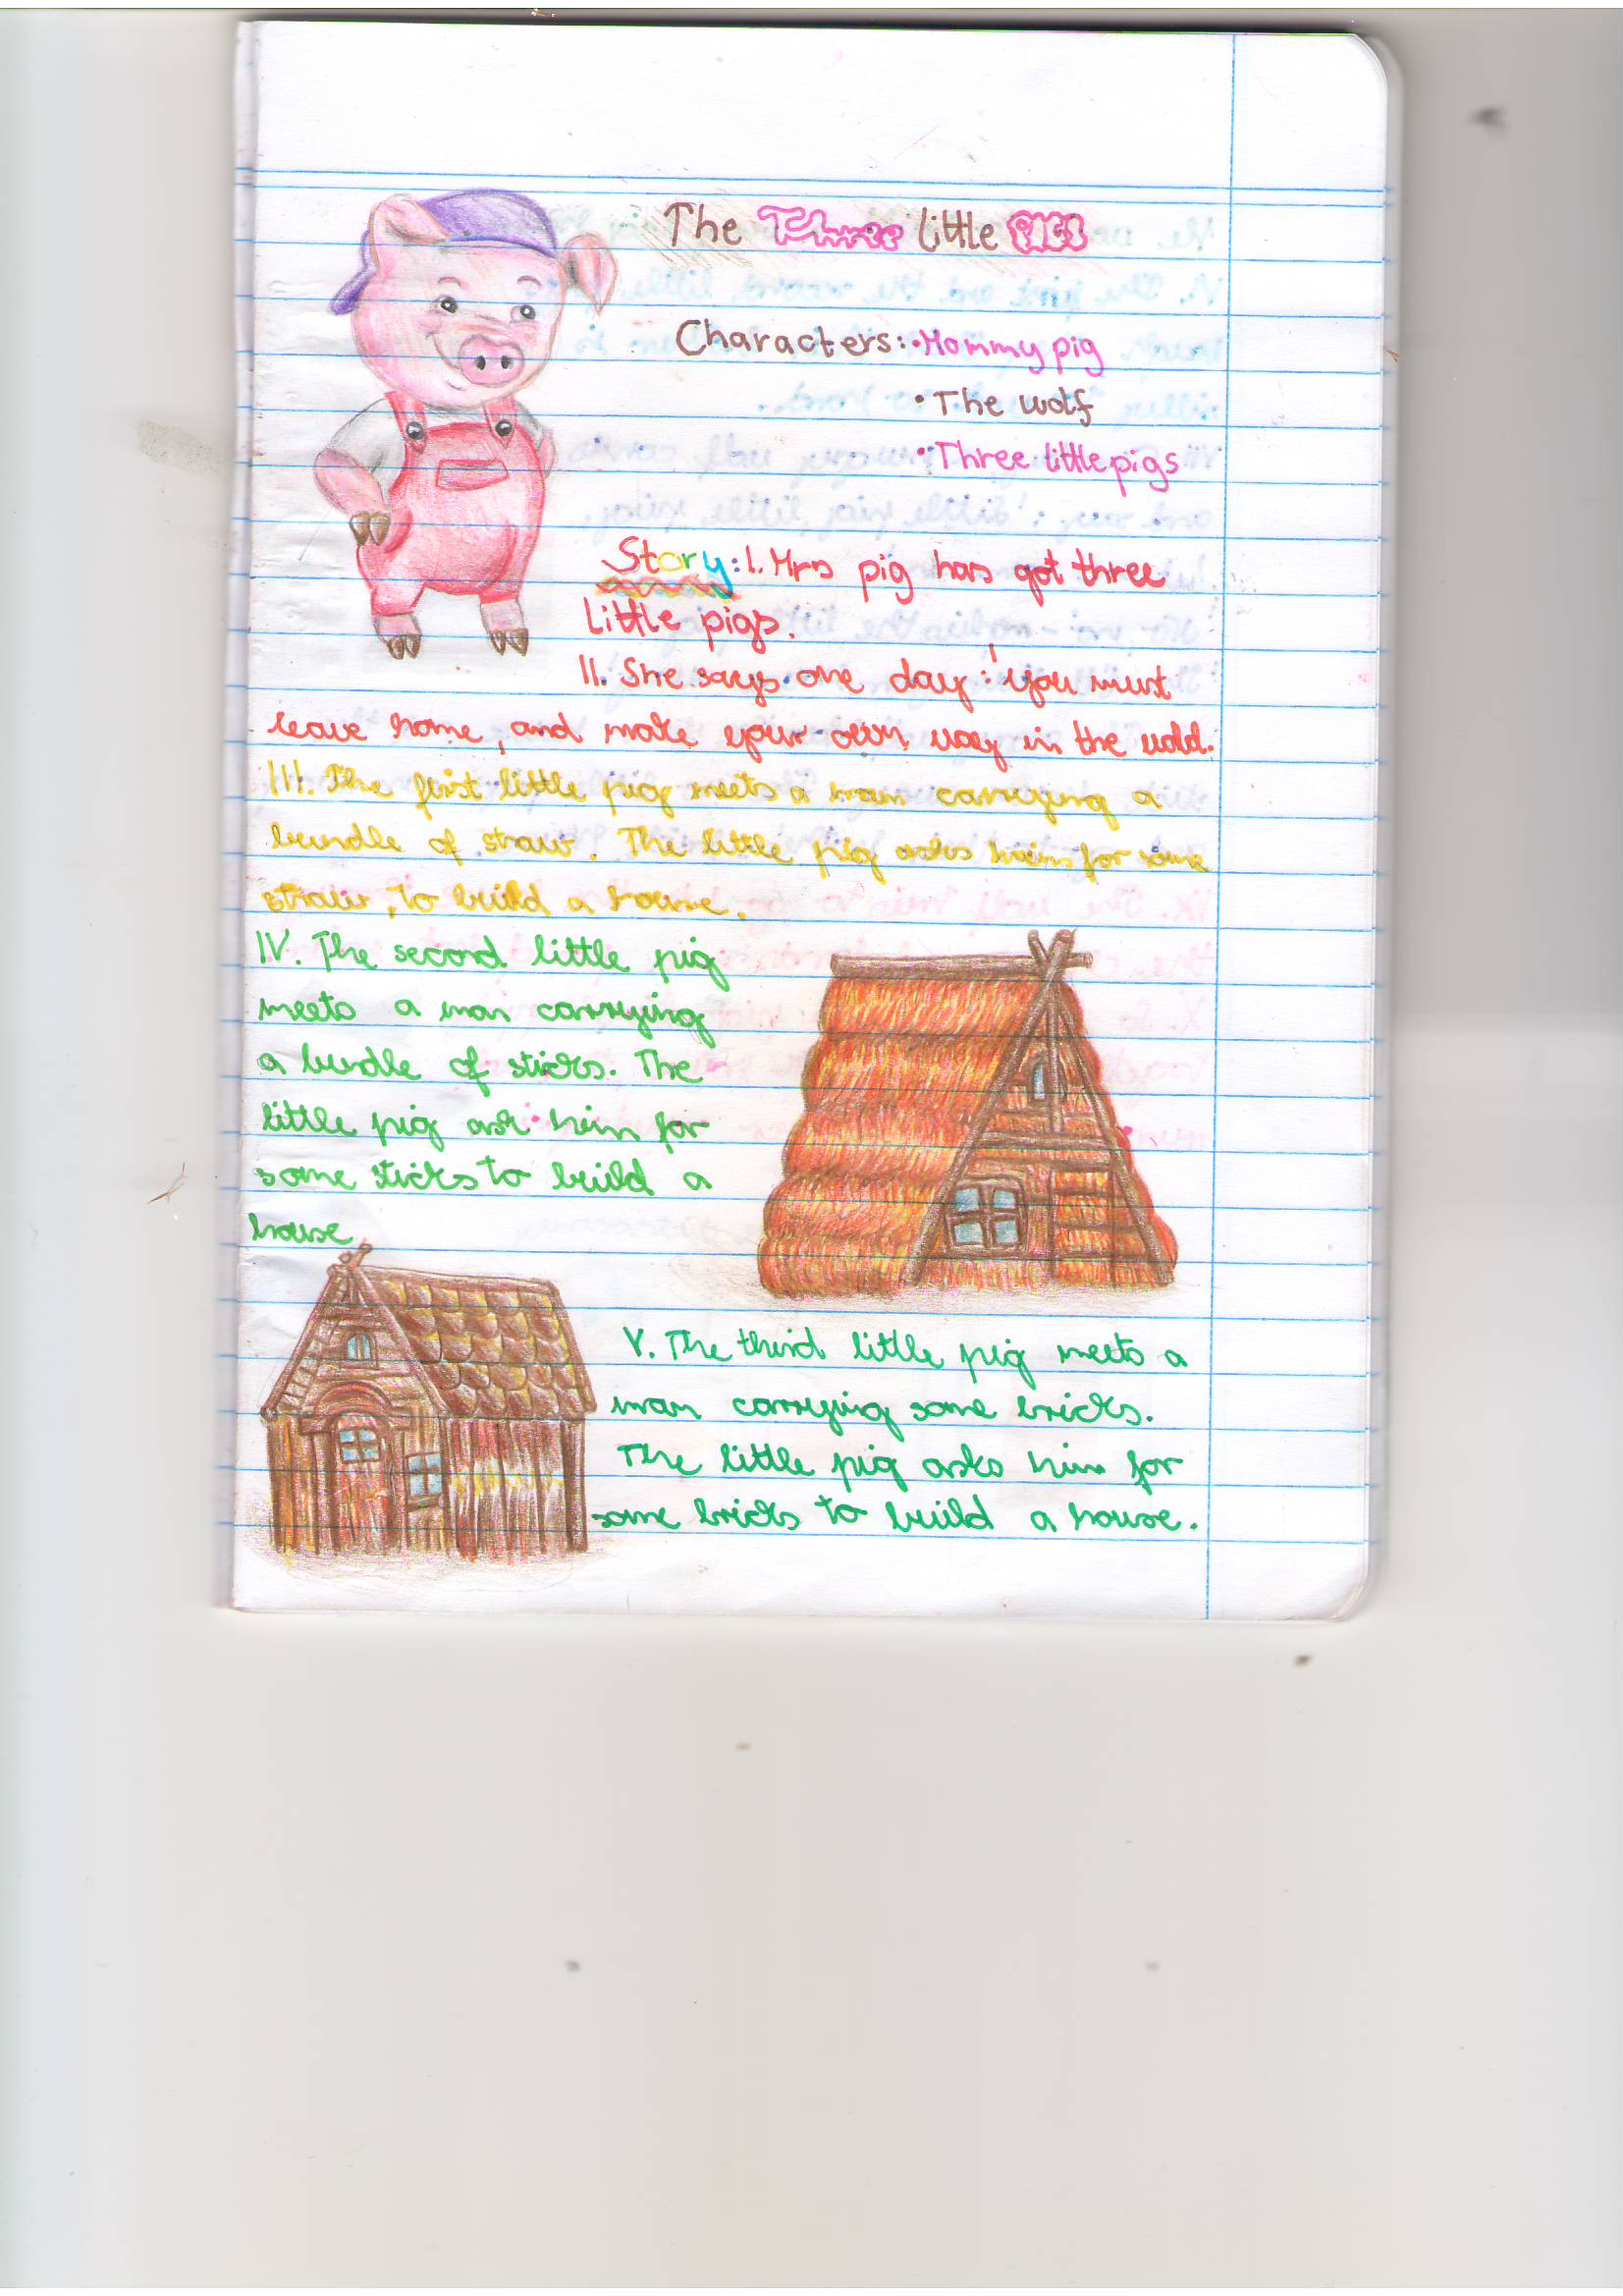 The Three little PIGS
Characters: • Mommy pig
• The wolf
• Three little pigs
Story: I. Mrs pig has got three
little pigs.
II. She says one day: 'you must
leave home, and make your own way in the wold.
III. The first little pig meets a man carrying a
bundle of straw. The little pig asks him for some
straw, to build a house.
IV. The second little pig
meets a man carrying
a bundle of sticks. The
little pig ask him for
some sticks to build a
house
V. The third little pig meets a
man carrying some bricks.
The little pig asks him for
some bricks to build a house.